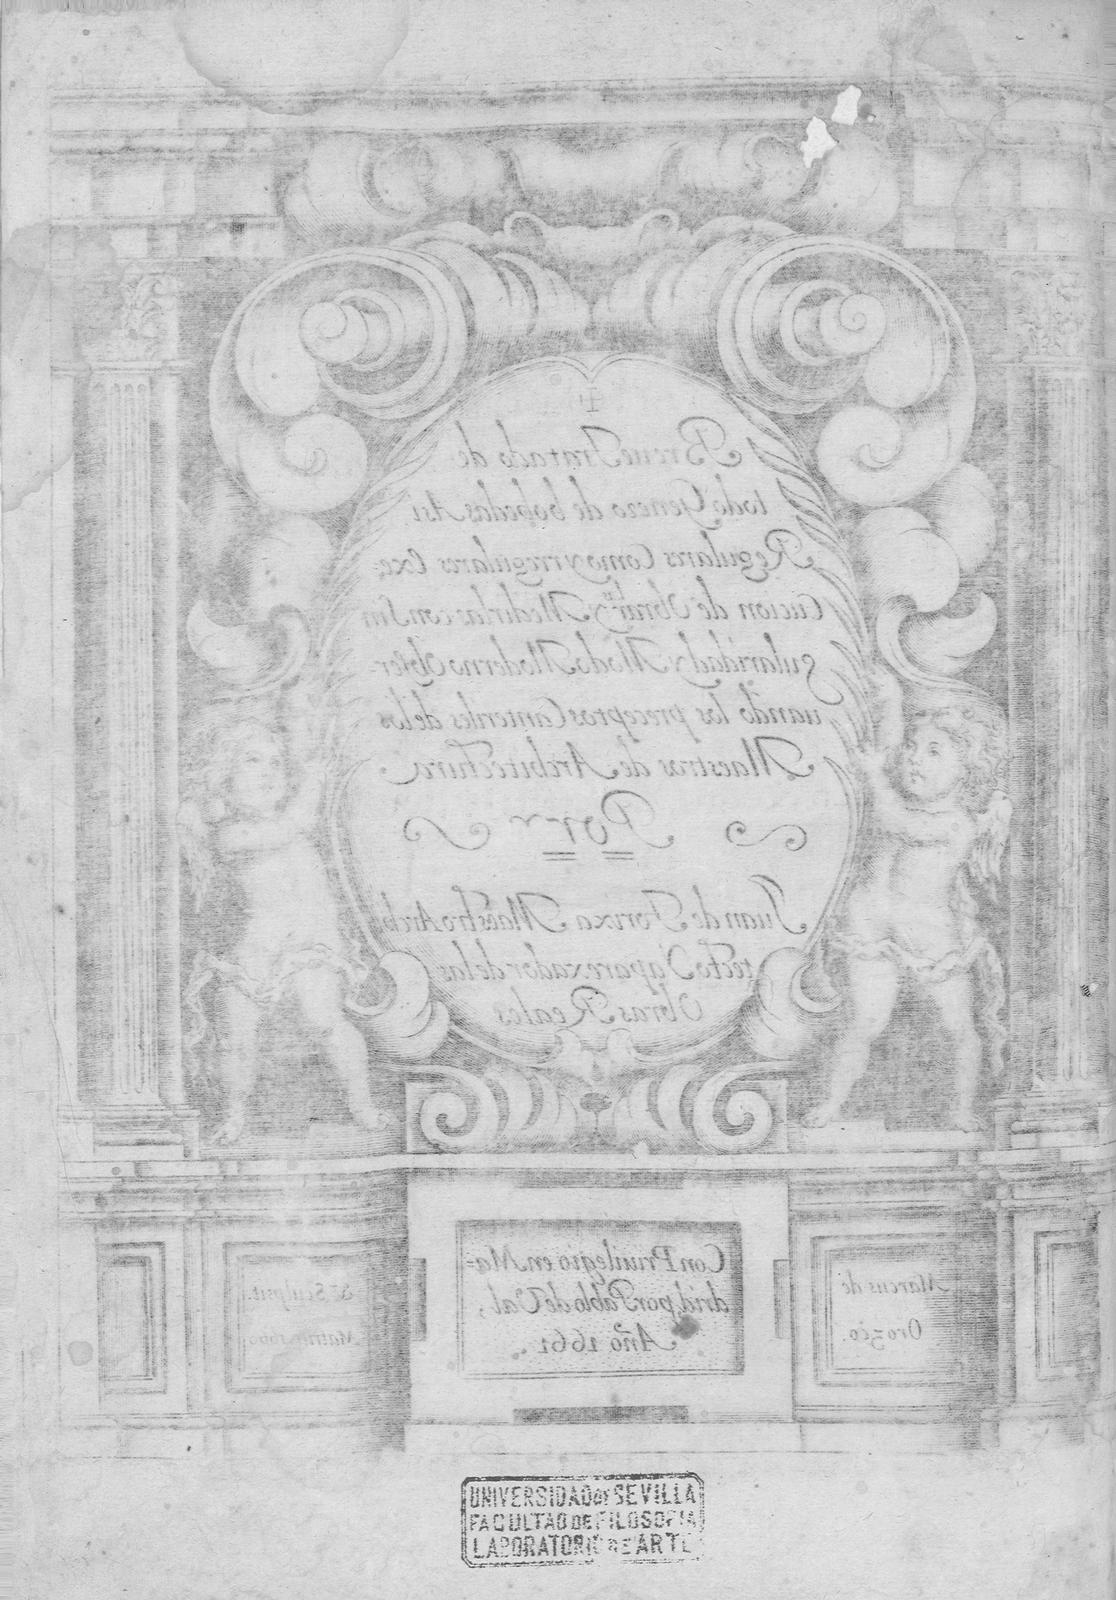 Breue Tratado de
todo Genero de bobedas Asi
Regulares Como yrregulares Exe-
Cucion de Obrarlas y Medirlas con Sin
gularidad y Modo Moderno Obser-
uando los preceptos Canteriles de los
Maestros de Architectura
Por
Juan de Torixa Maestro Archi
tecto y aparexador de las
Obras Reales
Con Priuilegio en Ma-
drid, por Pablo de Val,
Año 1661.
Marcus de
Orozco.
Sculpsit.
Matriti 1660
UNIVERSIDAD DE SEVILLA
FACULTAD DE FILOSOFIA
LABORATORIO DE ARTE